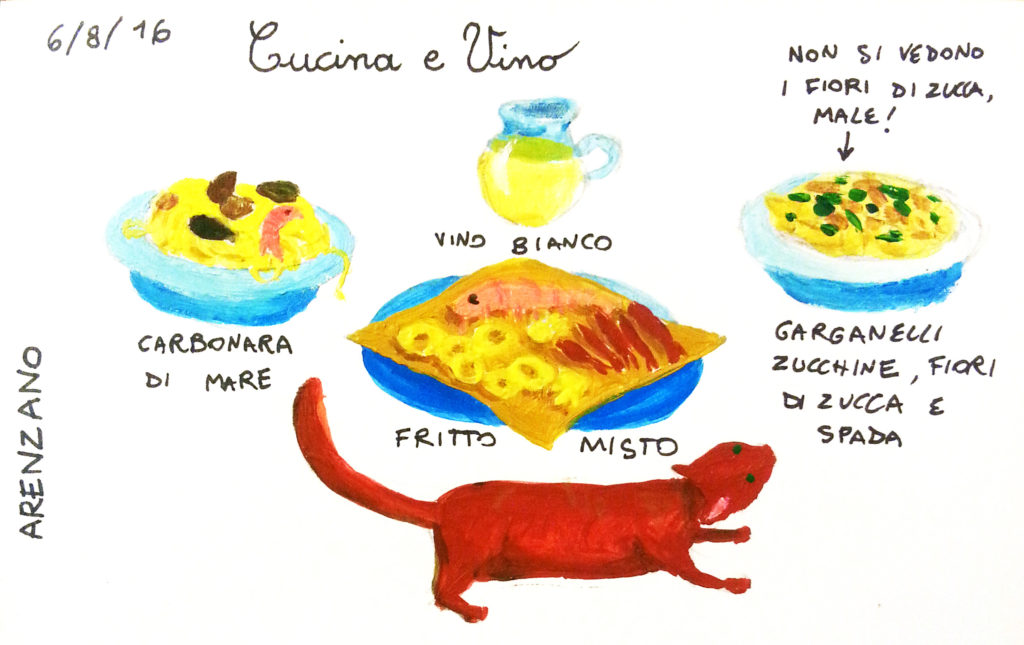 6/8/16
Cucina e Vino
NON SI VEDONO
I FIORI DI ZUCCA,
MALE!
VINO BIANCO
CARBONARA
DI MARE
GARGANELLI
ZUCCHINE, FIORI
DI ZUCCA E
SPADA
FRITTO MISTO
ARENZANO